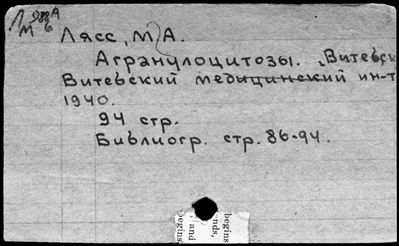 Лясс, М. А.
Агранулоцитозы.
Витебский медицинский ин-т
1940.
94 стр.
Библиогр. стр. 86-94.
begins
and
begins